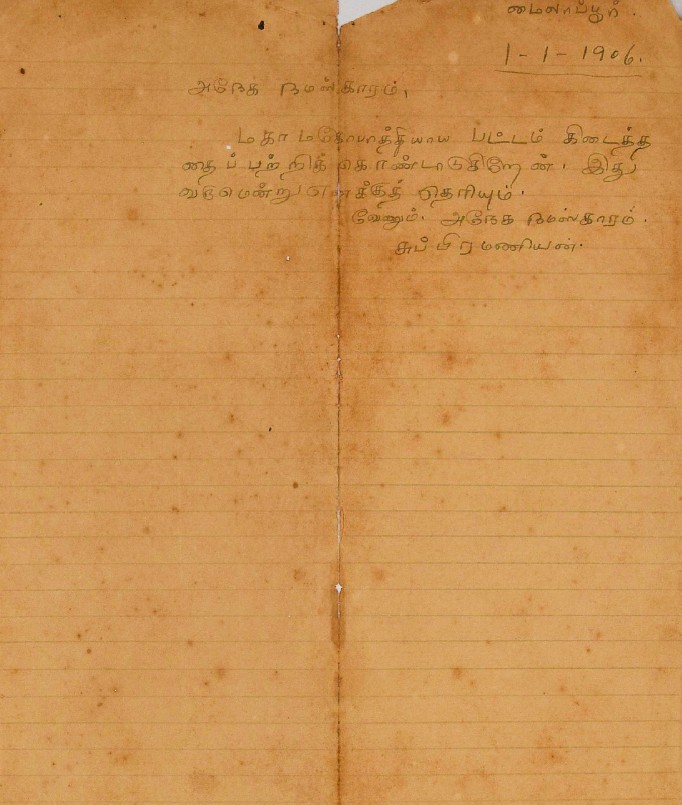 மைலாப்பூர்.
1-1-1906.
அநேக நமஸ்காரம்,
மகாமகோபாத்தியாய பட்டம் கிடைத்த
தைப்பற்றிக் கொண்டாடுகிறேன். இது
வருமென்று எனக்குத் தெரியும்.
வேணும். அநேக நமஸ்காரம்.
சுப்பிரமணியன்.